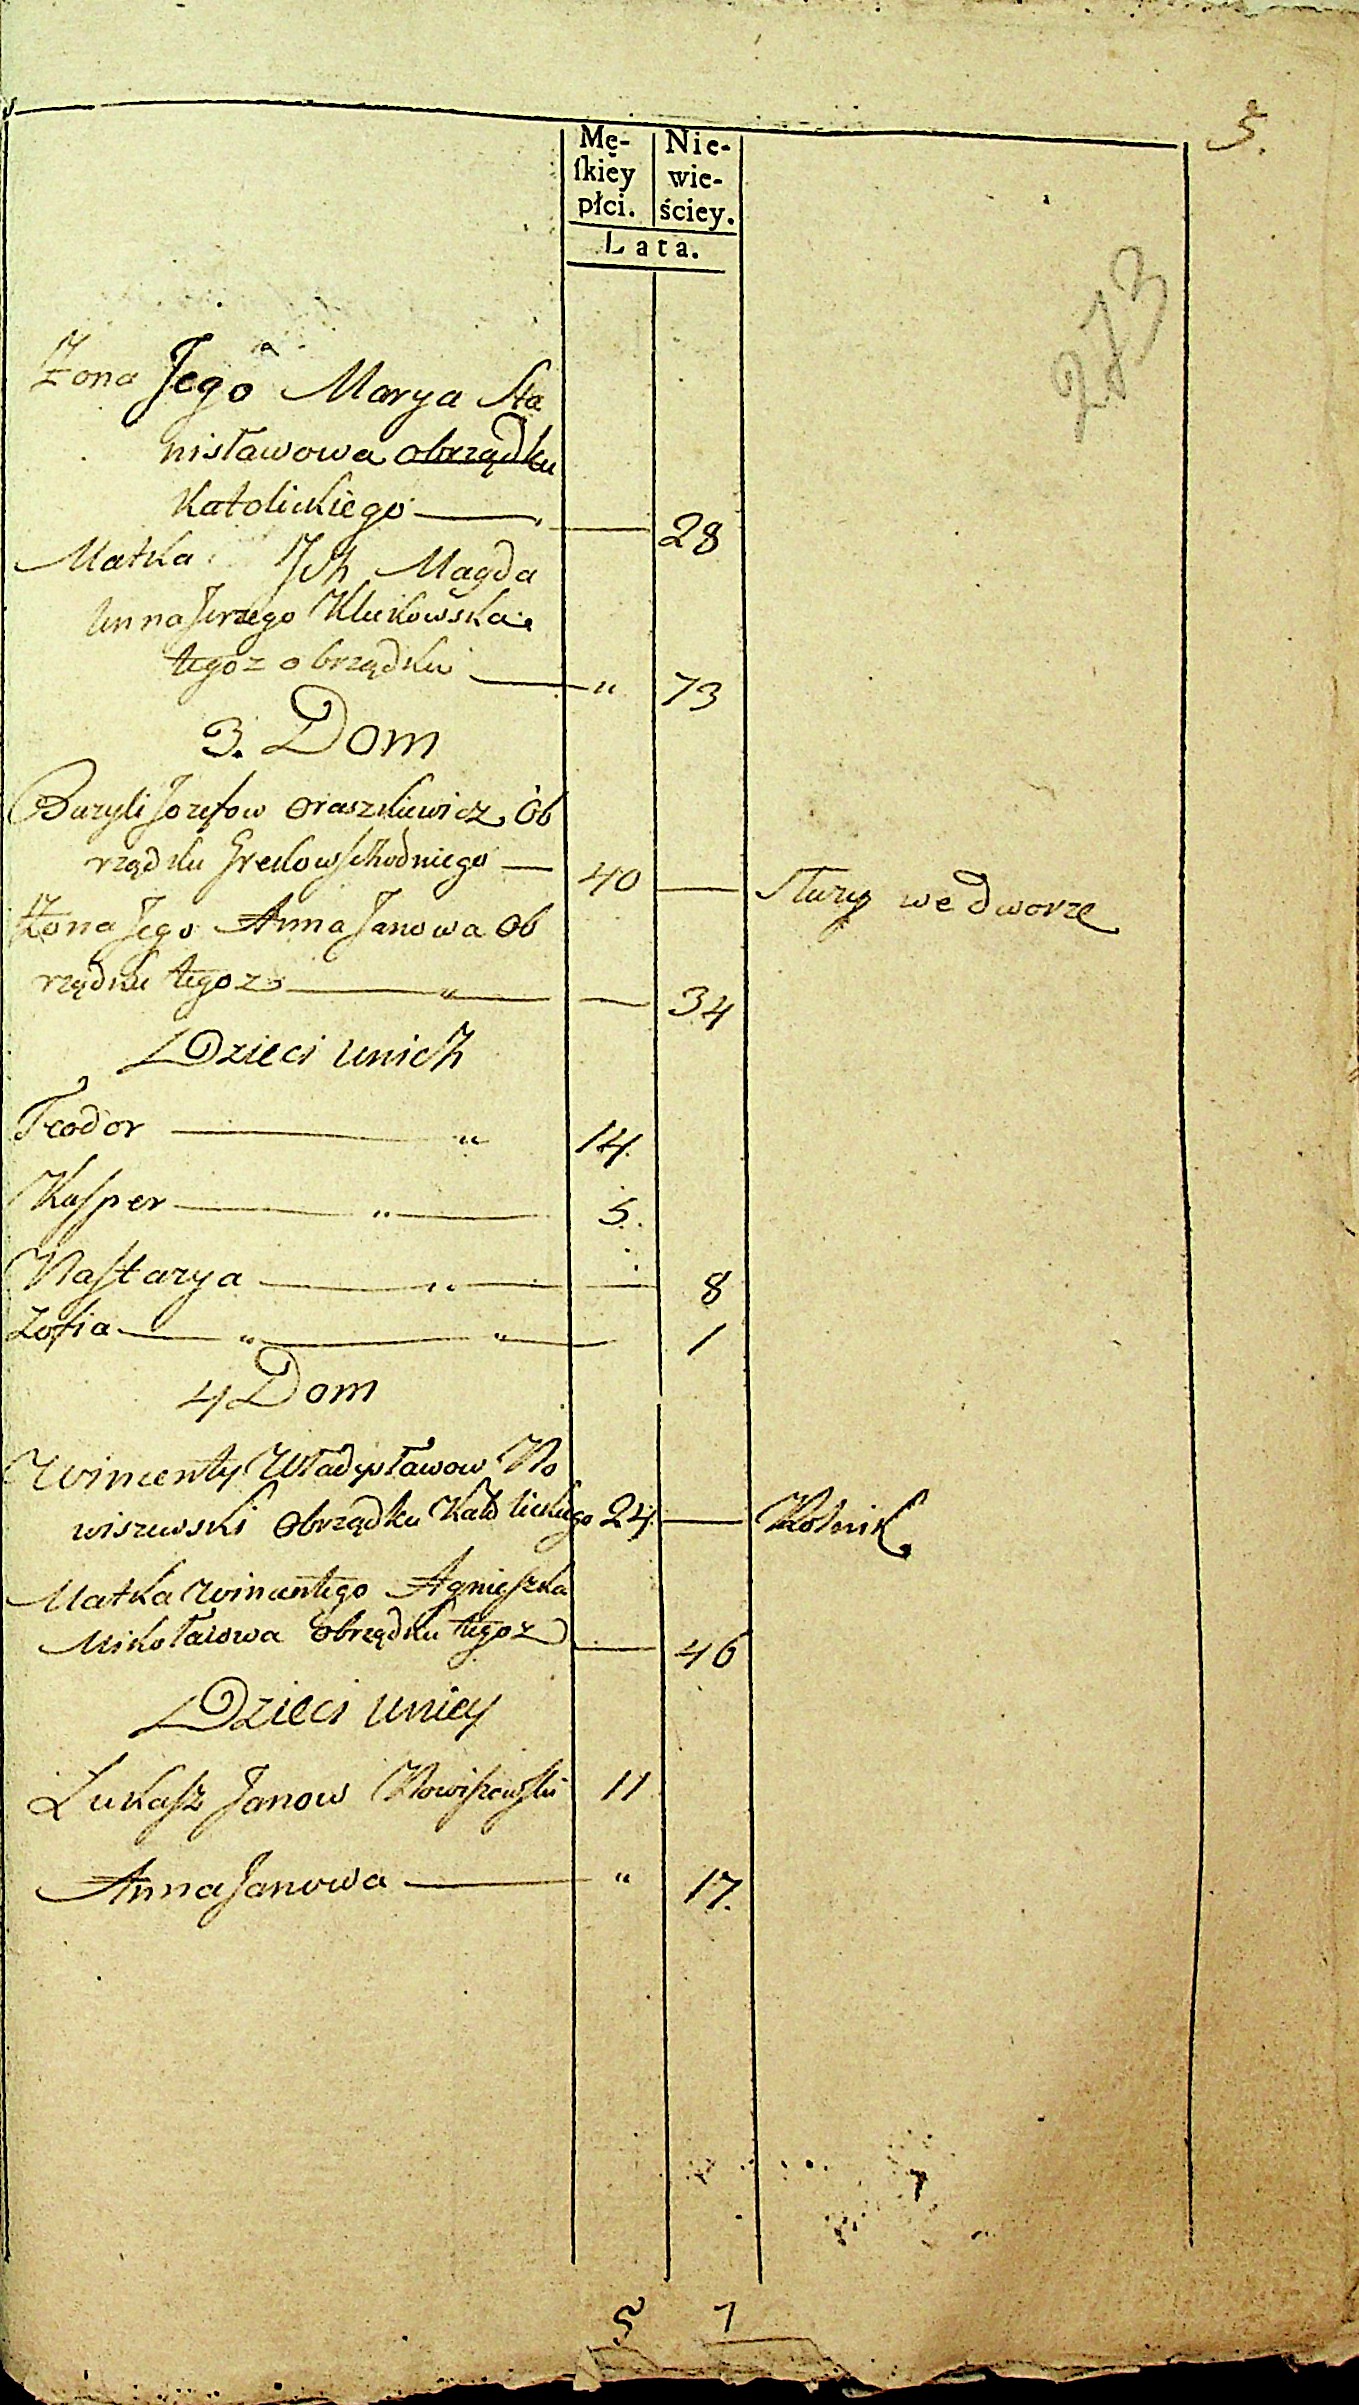 5.
Mę- Nie-
ſkiey wie-
płci. ściey.
Lata.
273
Zona Jego Marya Sta
nisławowa obrządku
Katolickiego — — 28
Matka Ich Magda
Jerzego Klukowska
tegoz obrządku — " 73
3. Dom
Bazyli Jozefow Oraszkiewicz Ob
rządku Grekowschodniego — 40 — Służy we dworze
Zona Jego Anna Janowa Ob
rządku tegoz — " — — 34
Dzieci unich
Teodor — " 14.
Kasper — " — 5.
Nastazya — " — — 8
Zofia — " — " — 1
4 Dom
Wincenty Władysławow No
wiszewski Obrządku Katolickiego 24. — Rolnik
Matka Wincentego Agnieszka
Mikołaiowa Obrządku tegoz — 46
Dzieci uniey
Łukasz Janow Nowiszewski 11
Anna Janowa — " 17.
5 7